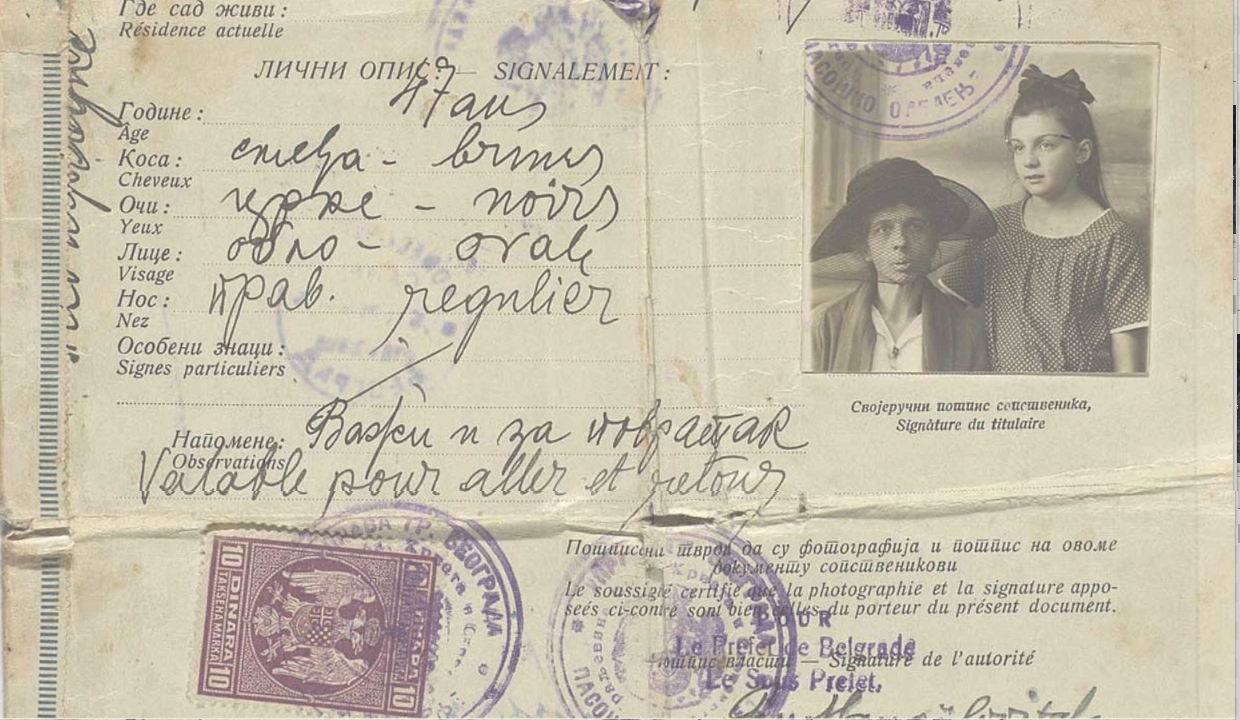 Где сад живи :
Résidence actuelle
ЛИЧНИ ОПИС : — SIGNALEMENT :
Године : 47 ans
Age
Коса : смеђа - bruns
Cheveux
Очи : црне - noirs
Yeux
Лице : обло - ovale
Visage
Нос : прав. regulier
Nez
Особени знаци :
Signes particuliers
Напомене : Важи и за повратак
Observations
Valable pour aller et retour
ПАСОШКО ОДЕЉЕЊЕ
Својеручни потпис сопственика,
Signature du titulaire
10 DINARA 10
TAKSENA MARKA
10 10
БЕОГРАДА
Потписани тврди да су фотографија и потпис на овоме
документу сопственикови
Le soussigné certifie que la photographie et la signature appo-
seés ci-contre sont bien celles du porteur du présent document.
POUR
Le Prefet de Belgrade
Потпис власти — Signature de l'autorité
Le Sous Prefet.